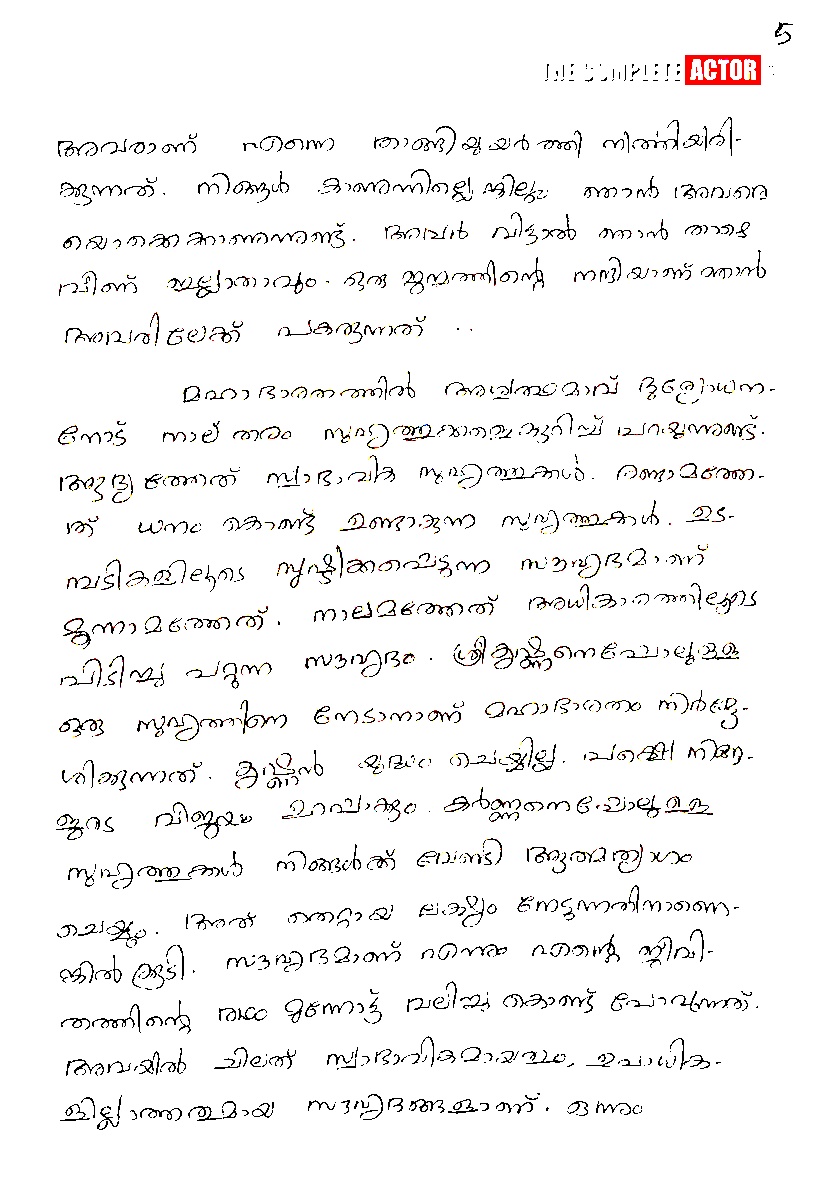 5
THE COMPLETE ACTOR
അവരാണ് എന്നെ താങ്ങിയുയർത്തി നിർത്തിയിരി-
ക്കുന്നത്. നിങ്ങൾ കാണുന്നില്ലെങ്കിലും ഞാൻ അവരെ
യൊക്കെകാണുന്നുണ്ട്. അവർ വിട്ടാൽ ഞാൻ താഴെ
വീണ് ഇല്ലാതാവും. ഒരു ജന്മത്തിന്റെ നന്ദിയാണ് ഞാൻ
അവരിലേക്ക് പകരുന്നത് ..
മഹാഭാരതത്തിൽ അശ്വത്ഥമാവ് ദുര്യോധന-
നോട് നാല് തരം സുഹൃത്തുക്കളെകുറിച്ച് പറയുന്നുണ്ട്.
ആദ്യത്തേത് സ്വാഭാവിക സുഹൃത്തുക്കൾ. രണ്ടാമത്തേ-
ത് ധനം കൊണ്ട് ഉണ്ടാകുന്ന സുഹൃത്തുകൾ. ഉട-
മ്പടികളിലൂടെ സൃഷ്ടിക്കപ്പെടുന്ന സൗഹൃദമാണ്
മൂന്നാമത്തേത്. നാലമത്തേത് അധികാരത്തിലൂടെ
പിടിച്ചു പറ്റുന്ന സൗഹൃദം. ശ്രീകൃഷ്ണനെപ്പോലുള്ള
ഒരു സുഹൃത്തിനെ നേടാനാണ് മഹാഭാരതം നിർദ്ദേ-
ശിക്കുന്നത്. കൃഷ്ണൻ യുദ്ധം ചെയ്യില്ല. പക്ഷെ നിങ്ങ-
ളുടെ വിജയം ഉറപ്പാക്കും. കർണ്ണനെപ്പോലുള്ള
സുഹൃത്തുക്കൾ നിങ്ങൾക്ക് വേണ്ടി ആത്മത്യാഗം
ചെയ്യും. അത് തെറ്റായ ലക്ഷ്യം നേടുന്നതിനാണെ-
ങ്കിൽ കൂടി. സൗഹൃദമാണ് എന്നും എന്റെ ജീവി-
തത്തിന്റെ രഥം മുന്നോട്ട് വലിച്ചു കൊണ്ട് പോവുന്നത്.
അവയിൽ ചിലത് സ്വാഭാവികമായതും, ഉപാധിക-
ളില്ലാത്തതുമായ സൗഹൃദങ്ങളാണ്. ഒന്നും